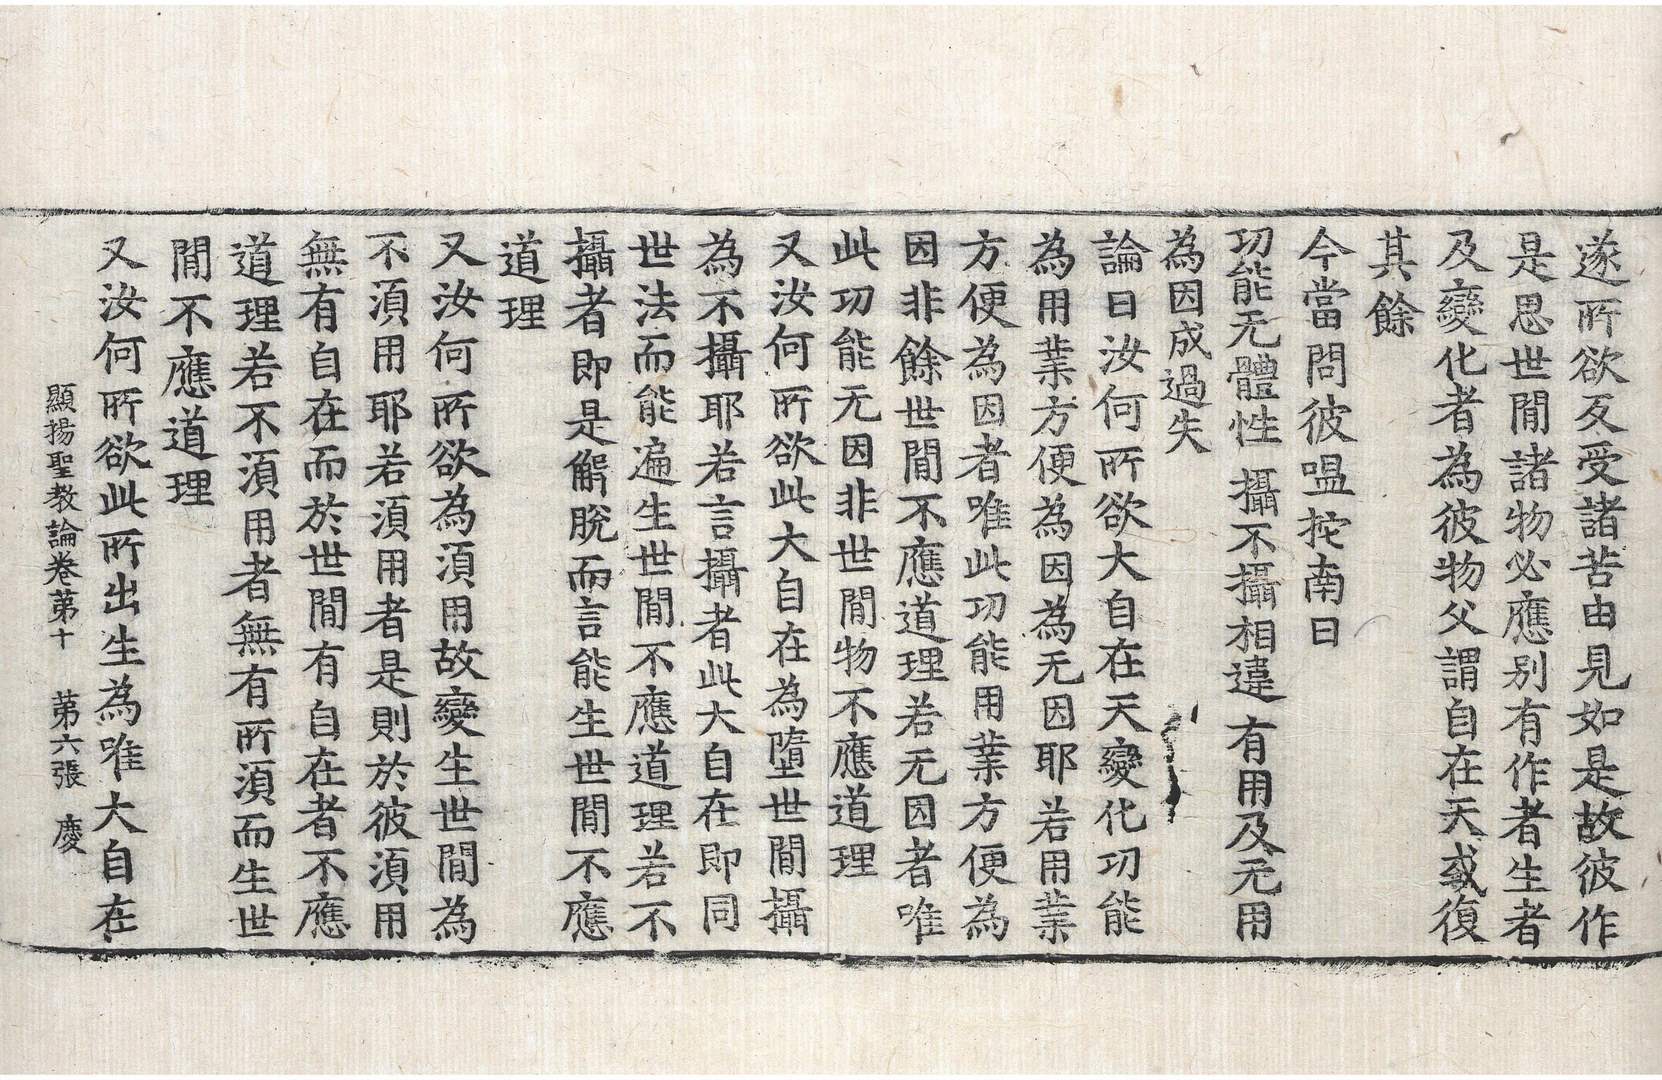 遂所欲反受諸苦由見如是故彼作
是思世間諸物必應別有作者生者
及變化者為彼物父謂自在天或復
其餘
今當問彼嗢拕南曰
功能无體性 攝不攝相違 有用及无用
為因成過失
論曰汝何所欲大自在天變化功能
為用業方便為因為无因耶若用業
方便為因者唯此功能用業方便為
因非餘世間不應道理若无因者唯
此功能无因非世間物不應道理
又汝何所欲此大自在為墮世間攝
為不攝耶若言攝者此大自在即同
世法而能遍生世間不應道理若不
攝者即是解脫而言能生世間不應
道理
又汝何所欲為須用故變生世間為
不須用耶若須用者是則於彼須用
無有自在而於世間有自在者不應
道理若不須用者無有所須而生世
間不應道理
又汝何所欲此所出生為唯大自在
顯揚聖教論卷第十 第六張 慶